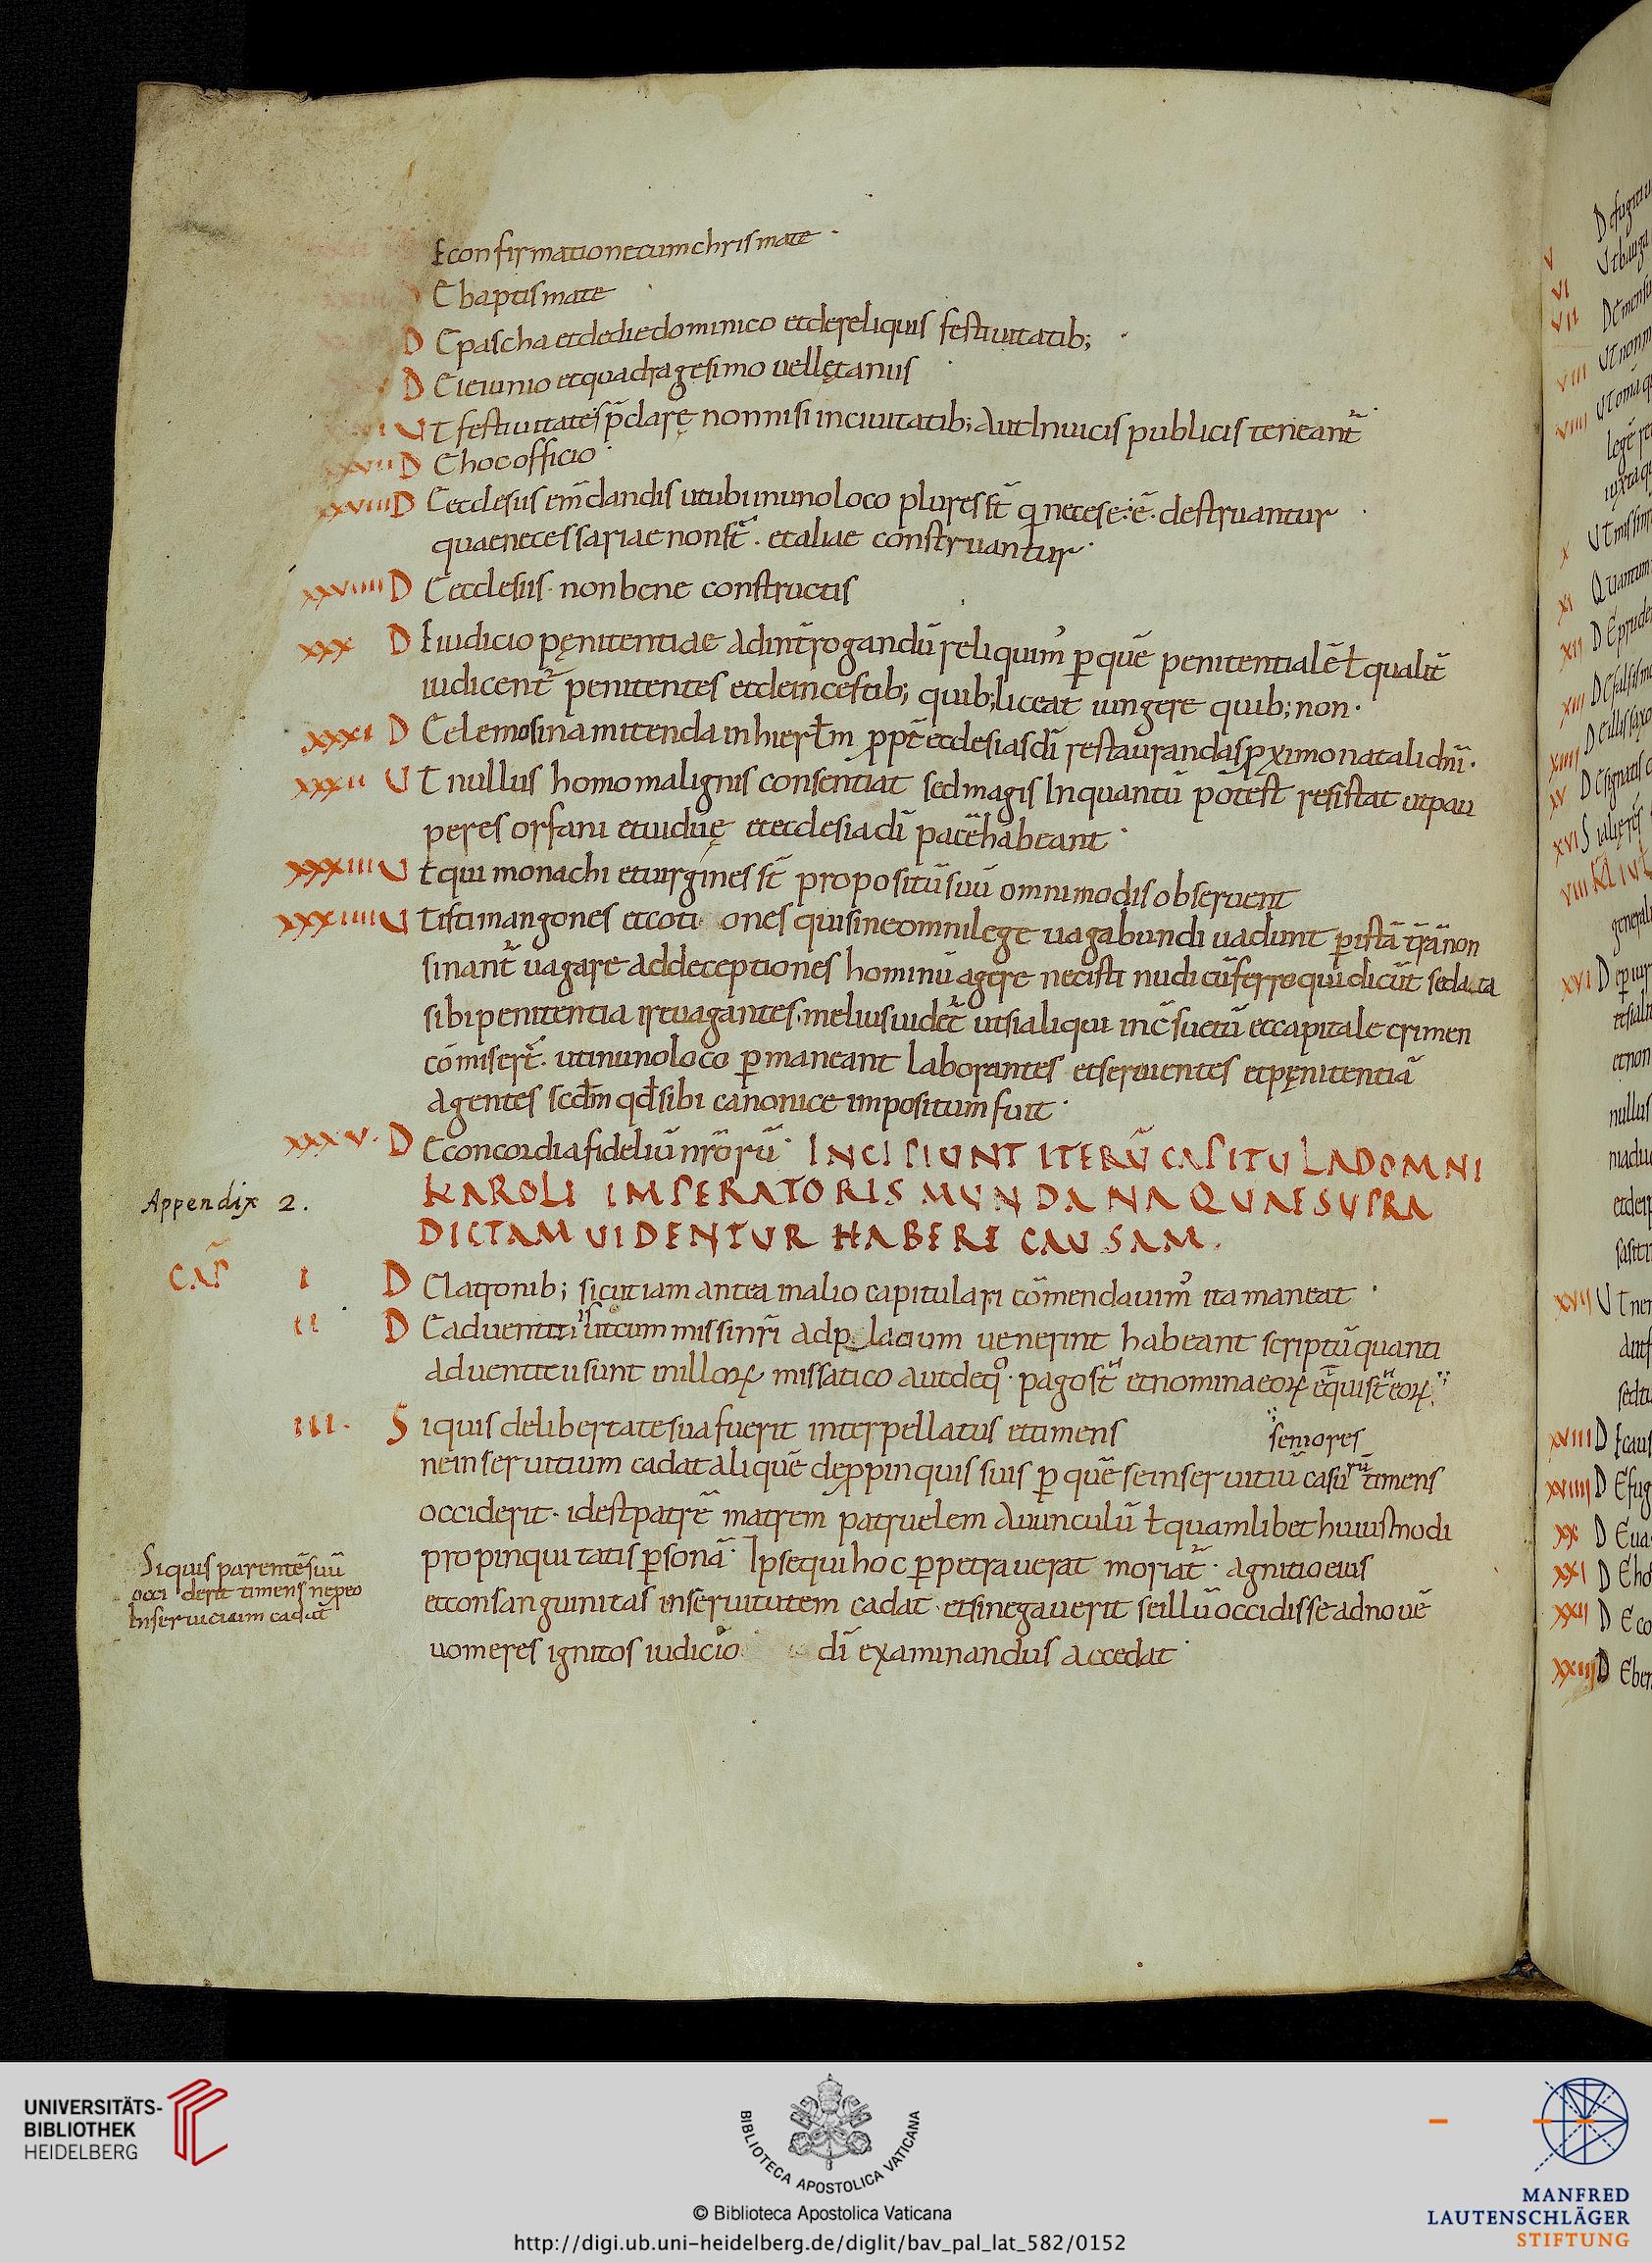 E confirmatione cum chrismate ·
D E baptismate
D E pascha et de die dominico et de reliquis festiuitatib;
D E ieiunio et quadragesimo uel letanus
U T festiuitates p̄clarę non nisi in ciuitatib; aut In uicis publicis teneant̄
xxvii D E hoc officio ·
xxviii D E ecclesiis em̄dandis ut ubi in uno loco plures st̄ q̄ necese:ē· destruantur
quae necessariae non st̄ · et aliae construantur ·
xxviiii D E ecclesiis · non bene constructis
xxx D E iudicio pęnitentiae ad int̄rogandū reliquim᾽ p̱ quē penitentialē ł qualit̄
iudicent̄ penitentes et de incestib; quib; liceat iungere quib; non ·
xxxi D E elemosina mittenda in hierłm ꝓpt̄ ecclesias dī restaurandas ꝓximo natali dn̄i ·
xxxii U T nullus homo malignis consentiat sed magis In quantū potest resistat ut pau
peres orfani et uiduę et ecclesia dī pacē habeant ·
xxxiii U T qui monachi et uirgines st̄ propositū suū omnimodis obseruent
xxxiiii U T isti mangones et coti ones qui sine omni lege uagabundi uadunt p̱ istā t̄rā non
sinant̄ uagare ad deceptiones hominū agere nec isti nudi cū ferro qui dicūt se data
sibi penitentia ire uagantes · melius uidet̄ ut si aliqui inc̄suetū et capitale crimen
cōmisert̄ · ut in uno loco p̱maneant laborantes et seruientes et pęnitentiā
agentes scdm̄ qd̄ sibi canonice impositum fuit ·
xxxv · D E concordia fideliū nr̄orū · INCIPIUNT ITERŪ CAPITULA DOMNI
Appendix 2.
KAROLI IMPERATORIS MUNDANA QUAE SUPRA
DICTAM UIDENTUR HABERE CAUSAM .
CAP̄ I D E latronib; sicut iam antea in alio capitulari cōmendauim᾽ ita maneat ·
II D E aduenticiis ut cum missi nr̄i ad palacium uenerint habeant scriptū quanti
aduenticii sunt in illoꝝ missatico aut de q᾽ · pago st̄ et nomina eoꝝ et qui st̄ eoꝝ
seniores
III · S i quis de libertate sua fuerit interpellatus et timens
ne in seruitium cadat aliquē de ꝓpinquis suis p̱ quē se in seruitiū casurū timens
occiderit · id est patrē matrem patruelem auunculū ł quamlibet huiusmodi
propinquitatis p̱sonā · Ipse qui hoc p̱petrauerat moriat̄ · agnitio eius
et consanguinitas in seruitutem cadat · et si negauerit se illū occidisse ad nouē
uomeres ignitos iudicio dī examinandus accedat ·
Si quis parentē suū
occi derit timens ne p̱ eo
In seruicium cadat
UNIVERSITÄTS-
BIBLIOTHEK
HEIDELBERG
BIBLIOTECA APOSTOLICA VATICANA
© Biblioteca Apostolica Vaticana
http://digi.ub.uni-heidelberg.de/diglit/bav_pal_lat_582/0152
MANFRED
LAUTENSCHLÄGER
STIFTUNG